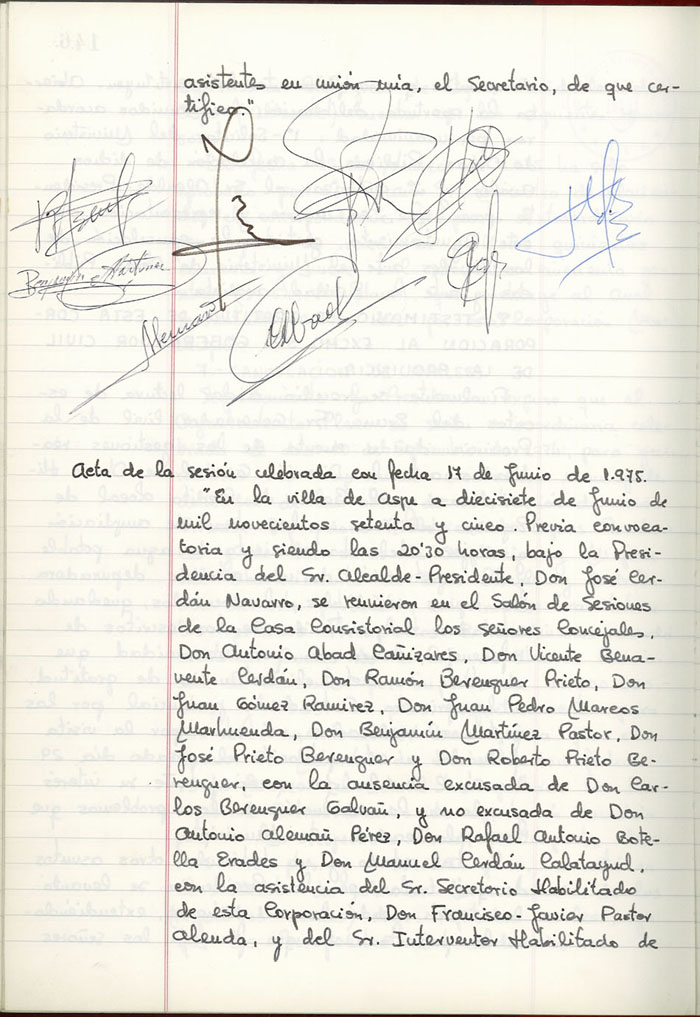 asistentes en unión mia, el Secretario, de que cer-
tifico."
Benjamin Martinez
Alemañ
Abad
Acta de la sesión celebrada con fecha 17 de Junio de 1.975.
"En la villa de Aspe a diecisiete de Junio de
mil novecientos setenta y cinco. Previa convoca-
toria y siendo las 20'30 horas, bajo la Presi-
dencia del Sr. Alcalde-Presidente, Don José Cer-
dán Navarro, se reunieron en el Salón de Sesiones
de la Casa Consistorial los señores Concejales,
Don Antonio Abad Cañizares, Don Vicente Bena-
vente Cerdán, Don Ramón Berenguer Prieto, Don
Juan Gómez Ramirez, Don Juan Pedro Marcos
Marhuenda, Don Benjamín Martínez Pastor, Don
José Prieto Berenguer y Don Roberto Prieto Be-
renguer, con la ausencia excusada de Don Car-
los Berenguer Galvañ, y no excusada de Don
Antonio Alemañ Pérez, Don Rafael Antonio Bote-
lla Erades y Don Manuel Cerdán Calatayud,
con la asistencia del Sr. Secretorio Habilitado
de esta Corporación, Don Francisco-Javier Pastor
Alenda, y del Sr. Interventor Habilitado de